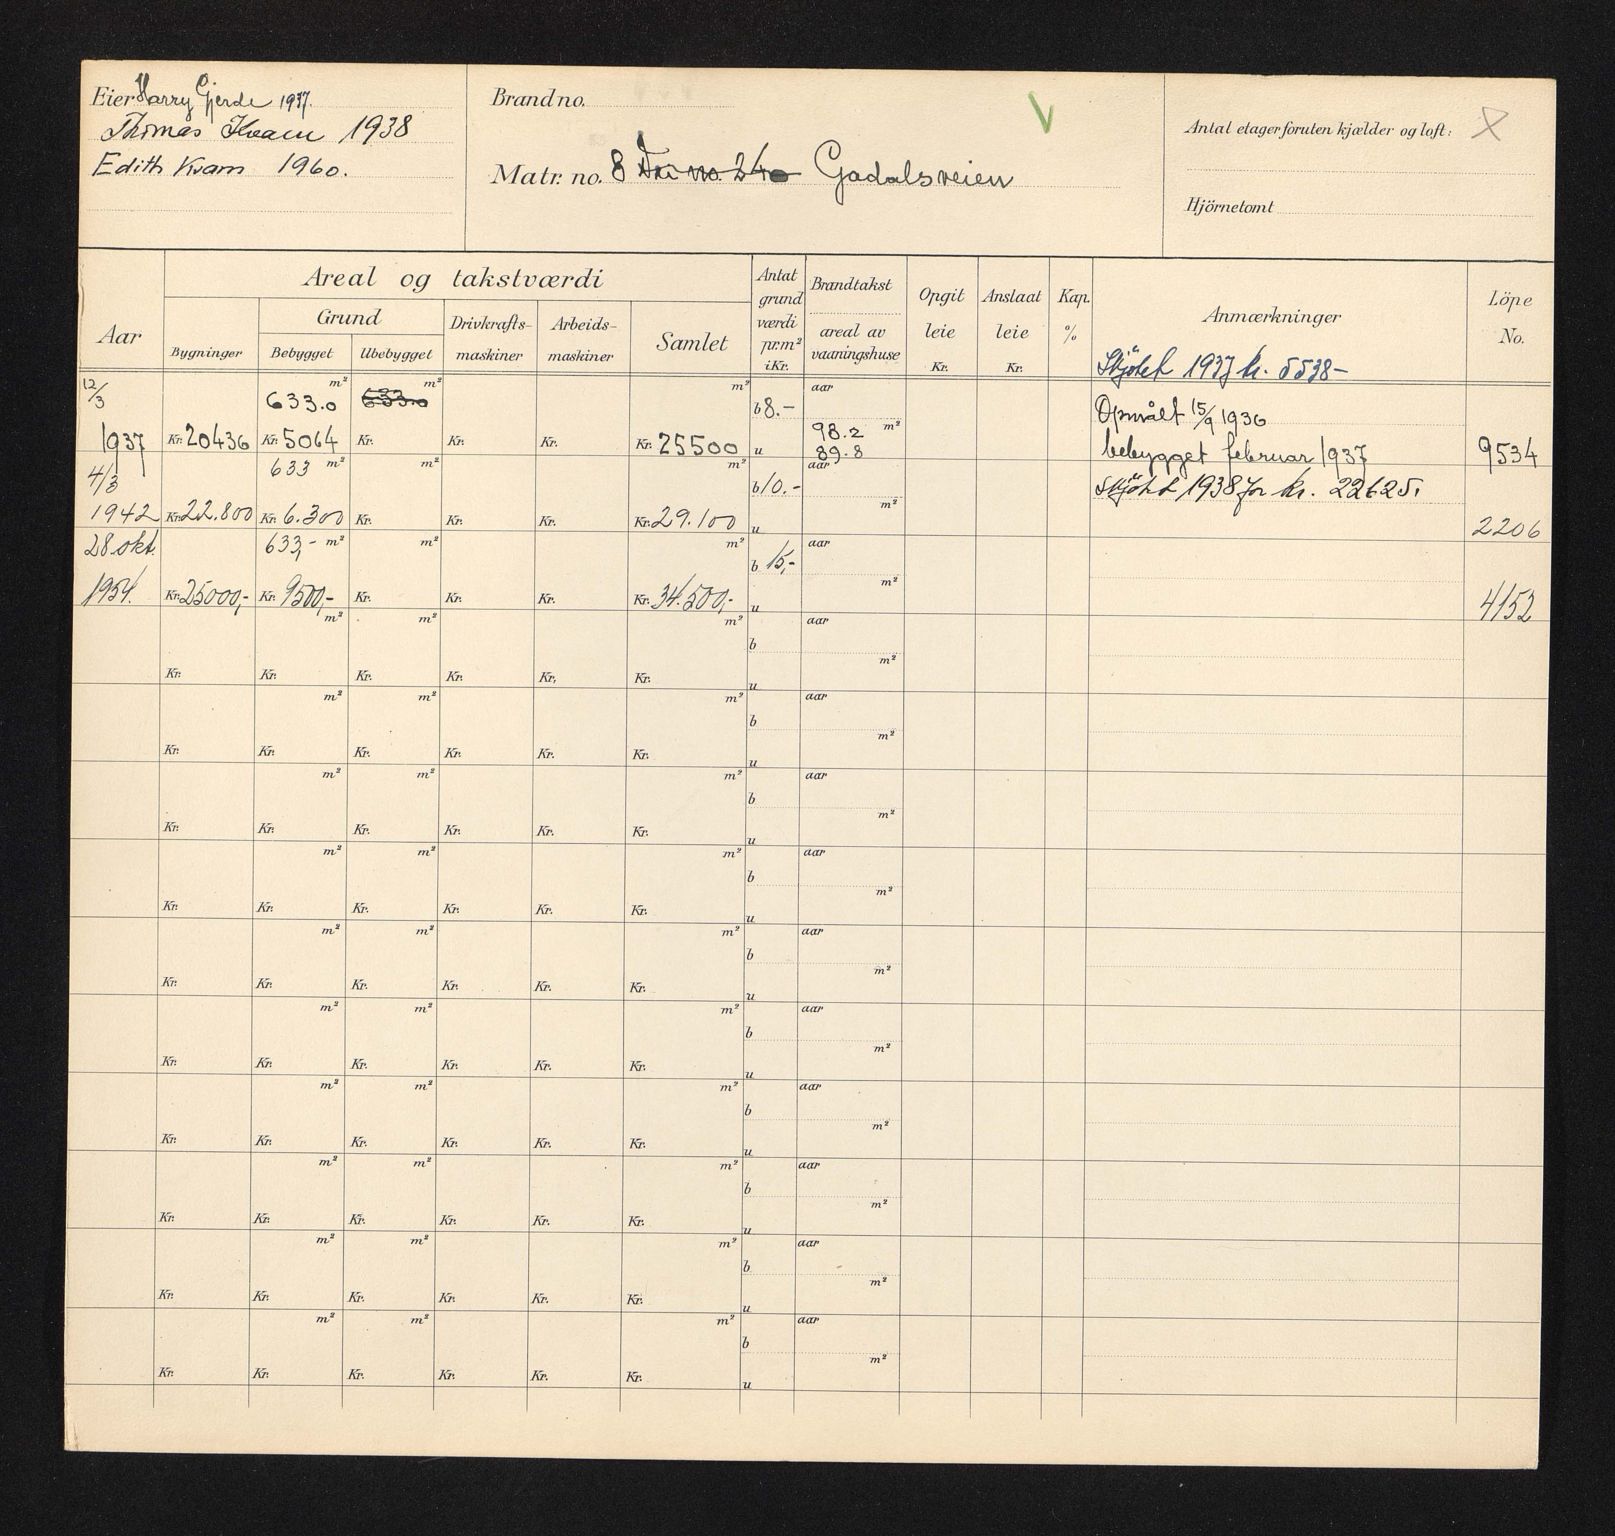 Eier Harry Gjerde 1937.
Thomas Kvam 1938
Edith Kvam 1960.
Brand no.
Matr. no. 8 Tri no. 240 Gadalsveien
Antal etager foruten kjælder og loft:
Hjörnetomt
Aar
Areal og takstværdi
Bygninger
Grund
Bebygget
Ubebygget
Drivkrafts-
maskiner
Arbeids-
maskiner
Samlet
Antat
grund
værdi
pr.m²
i Kr.
Brandtakst
areal av
vaaningshuse
Opgit
leie
Kr.
Anslaat
leie
Kr.
Kap.
%
Anmærkninger
Löpe
No.
Skjötet 1937 kr. 5538-
12/3 m² 633.0 m² 633.0 m² b 8.- aar Opmålt 15/9 1936
1937 Kr. 20436 Kr. 5064 Kr. Kr. Kr. Kr. 25500 u 98.2 m² 89.8 bebygget februar 1937 9534
4/3 633 m² m² m² b 10.- aar skjötet 1938 for kr. 22625.
1942 Kr. 22.800 Kr. 6.300 Kr. Kr. Kr. Kr. 29.100 u m² 2206
28 okt. 633,- m² m² m² b 15,- aar
1954. Kr. 25000,- Kr. 9500,- Kr. Kr. Kr. Kr. 34.500,- u m² 4152
m² m² m² b aar
Kr. Kr. Kr. Kr. Kr. Kr. u m²
m² m² m² b aar
Kr. Kr. Kr. Kr. Kr. Kr. u m²
m² m² m² b aar
Kr. Kr. Kr. Kr. Kr. Kr. u m²
m² m² m² b aar
Kr. Kr. Kr. Kr. Kr. Kr. u m²
m² m² m² b aar
Kr. Kr. Kr. Kr. Kr. Kr. u m²
m² m² m² b aar
Kr. Kr. Kr. Kr. Kr. Kr. u m²
m² m² m² b aar
Kr. Kr. Kr. Kr. Kr. Kr. u m²
m² m² m² b aar
Kr. Kr. Kr. Kr. Kr. Kr. u m²
m² m² m² b aar
Kr. Kr. Kr. Kr. Kr. Kr. u m²
m² m² m² b aar
Kr. Kr. Kr. Kr. Kr. Kr. u m²